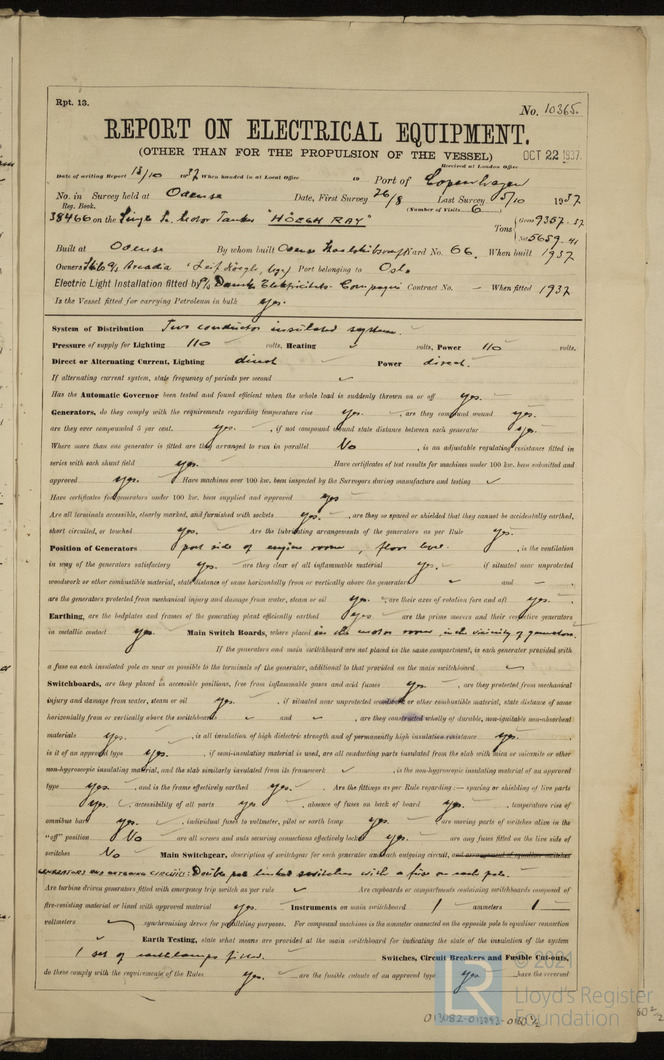 Rpt. 13.
No. 10365.
REPORT ON ELECTRICAL EQUIPMENT.
(OTHER THAN FOR THE PROPULSION OF THE VESSEL)
OCT 22 1937.
Received at London Office
Date of writing Report 13/10 1937 When handed in at Local Office 10 Port of Copenhagen
No. in Survey held at Odense Date, First Survey 26/8 Last Survey 5/10 1937
Reg. Book. (Number of Visits 6)
38466 on the Single Sc. Motor Tanker "HÖEGH RAY" Tons { Gross 9357.37
Net 5659.41
Built at Odense By whom built Odense Staalskibsværft Yard No. 66. When built 1937
Owners Skibs A/S Arcadia (Leif Höegh, mgr) Port belonging to Oslo
Electric Light Installation fitted by A/S Dansk Elektricitets Compagni Contract No. — When fitted 1937
Is the Vessel fitted for carrying Petroleum in bulk yes.
System of Distribution Two conductor insulated system.
Pressure of supply for Lighting 110 volts, Heating ✓ volts, Power 110 volts.
Direct or Alternating Current, Lighting direct Power direct.
If alternating current system, state frequency of periods per second ✓
Has the Automatic Governor been tested and found efficient when the whole load is suddenly thrown on or off yes.
Generators, do they comply with the requirements regarding temperature rise yes. , are they compound wound yes.
are they over compounded 5 per cent. yes. , if not compound wound state distance between each generator yes.
Where more than one generator is fitted are they arranged to run in parallel No , is an adjustable regulating resistance fitted in
series with each shunt field yes. Have certificates of test results for machines under 100 kw. been submitted and
approved yes. Have machines over 100 kw. been inspected by the Surveyors during manufacture and testing ✓
Have certificates for generators under 100 kw. been supplied and approved yes
Are all terminals accessible, clearly marked, and furnished with sockets yes. , are they so spaced or shielded that they cannot be accidentally earthed,
short circuited, or touched yes. Are the lubricating arrangements of the generators as per Rule yes.
Position of Generators port side of engine room, floor level. , is the ventilation
in way of the generators satisfactory yes. are they clear of all inflammable material yes. if situated near unprotected
woodwork or other combustible material, state distance of same horizontally from or vertically above the generators ✓ and —
are the generators protected from mechanical injury and damage from water, steam or oil yes. , are their axes of rotation fore and aft yes.
Earthing, are the bedplates and frames of the generating plant efficiently earthed yes are the prime movers and their respective generators
in metallic contact yes. Main Switch Boards, where placed in the motor room, in the vicinity of generators.
If the generators and main switchboard are not placed in the same compartment, is each generator provided with
a fuse on each insulated pole as near as possible to the terminals of the generator, additional to that provided on the main switchboard ✓
Switchboards, are they placed in accessible positions, free from inflammable gases and acid fumes yes. , are they protected from mechanical
injury and damage from water, steam or oil yes. , if situated near unprotected woodwork or other combustible material, state distance of same
horizontally from or vertically above the switchboards ✓ and ✓ , are they constructed wholly of durable, non-ignitable non-absorbent
materials yes. , is all insulation of high dielectric strength and of permanently high insulation resistance yes.
is it of an approved type yes. , if semi-insulating material is used, are all conducting parts insulated from the slab with mica or micanite or other
non-hygroscopic insulating material, and the slab similarly insulated from its framework ✓ , is the non-hygroscopic insulating material of an approved
type yes. , and is the frame effectively earthed yes. Are the fittings as per Rule regarding:— spacing or shielding of live parts
yes. , accessibility of all parts yes , absence of fuses on back of board yes. , temperature rise of
omnibus bars yes. , individual fuses to voltmeter, pilot or earth lamp yes. are moving parts of switches alive in the
"off" position No are all screws and nuts securing connections effectively locked yes. are any fuses fitted on the live side of
switches No Main Switchgear, description of switchgear for each generator and each outgoing circuit, and arrangement of equaliser switches
GENERATORS AND OUTGOING CIRCUITS: Double pole linked switches with a fuse on each pole.
Are turbine driven generators fitted with emergency trip switch as per rule ✓ Are cupboards or compartments containing switchboards composed of
fire-resisting material or lined with approved material yes. Instruments on main switchboard 1 ammeters 1
voltmeters synchronising device for paralleling purposes. For compound machines is the ammeter connected on the opposite pole to equaliser connection
✓ Earth Testing, state what means are provided at the main switchboard for indicating the state of the insulation of the system
1 set of earthlamps fitted. Switches, Circuit Breakers and Fusible Cut-outs,
do these comply with the requirements of the Rules yes. are the fusible cutouts of an approved type yes have the reversed
© 2021
LR
Lloyd's Register
Foundation
013082-013093-0160 1/2